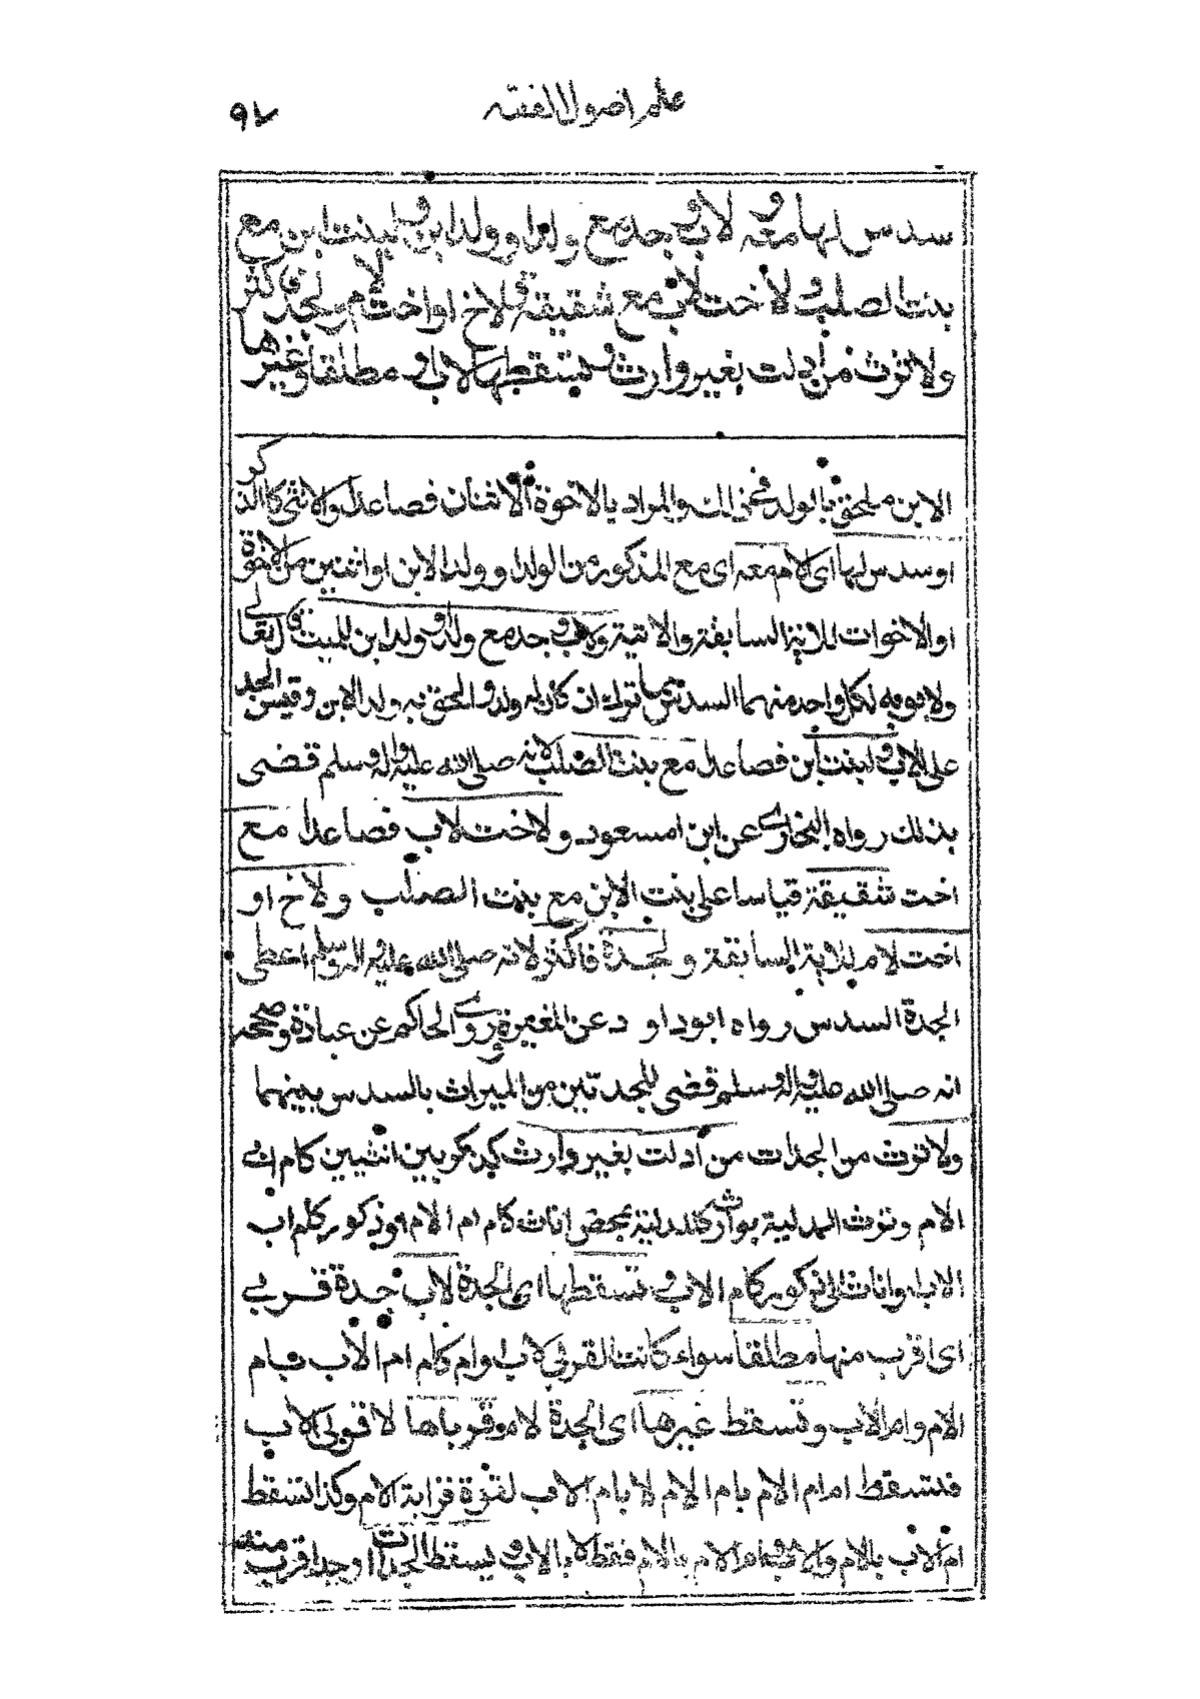 علم اصول الفقه
٩٧
سدس لها معه ولاب وجد مع ولد او ولد ابن ولبنت ابن مع
بنت الصلب ولاخت لاب مع شقيقة ولاخ او اخت لام ولجدة فاكثر
ولا ترث من ادلت بغير وارث وتسقطها لاب مطلقا وغيرها
الابن ملحق بالولد في ذلك والمراد بالاخوة الاثنان فصاعدا والانثى كالذكر
او سدس لها اى الام معه اى مع المذكور من الولد او ولد الابن او اثنين من الاخوة
او الاخوات للاية السابقة والاتية ولاب وجد مع ولد او ولد ابن للميت قال تعالى
ولابويه لكل واحد منهما السدس مما ترك ان كان له ولد والحق به ولد الابن وقيس الجد
على الاب ولبنت ابن فصاعدا مع بنت الصلب لانه صلى الله عليه واله وسلم قضى
بذلك رواه البخارى عن ابن مسعود ولاخت لاب فصاعدا مع
اخت شقيقة قياسا على بنت الابن مع بنت الصلب ولاخ او
اخت لام للاية السابقة ولجدة فاكثر لانه صلى الله عليه واله وسلم اعطى
الجدة السدس رواه ابوداود عن المغيرة وروى الحاكم عن عبادة وصححه
انه صلى الله عليه واله وسلم قضى للجدتين من الميراث بالسدس بينهما
ولا ترث من الجدات من ادلت بغير وارث كذكر بين انثيين كام اب
الام وترث المدلية بوارث كالمدلية بمحض اناث كام ام الام او ذكور كام اب
الاب او اناث الى ذكور كام الاب وتسقطها اى الجدة لاب جدة قربى
اى اقرب منها مطلقا سواء كانت القربى لاب او ام كام ام الاب بام
الام وام الاب وتسقط غيرها اى الجدة لام قرباها لا قربى لاب
فتسقط ام ام الام بام الام لا بام الاب لقوة قرابة الام وكذا تسقط
ام الاب بالام والاب وام الام بالام فقط لا بالاب ويسقط الجدات او جد اقرب منه